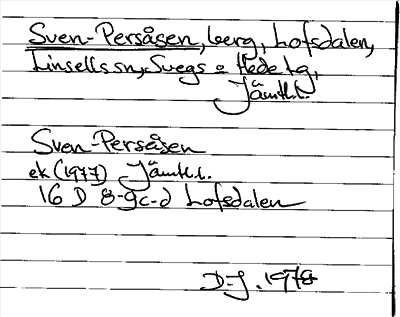 Sven-Persåsen, berg, Lofsdalen,
Linsells sn, Svegs o Hede tg,
Jämtl.l.
Sven-Persåsen
ek (1977) Jämtl.l.
16 D 8-9c-d Lofsdalen
D-J. 1978